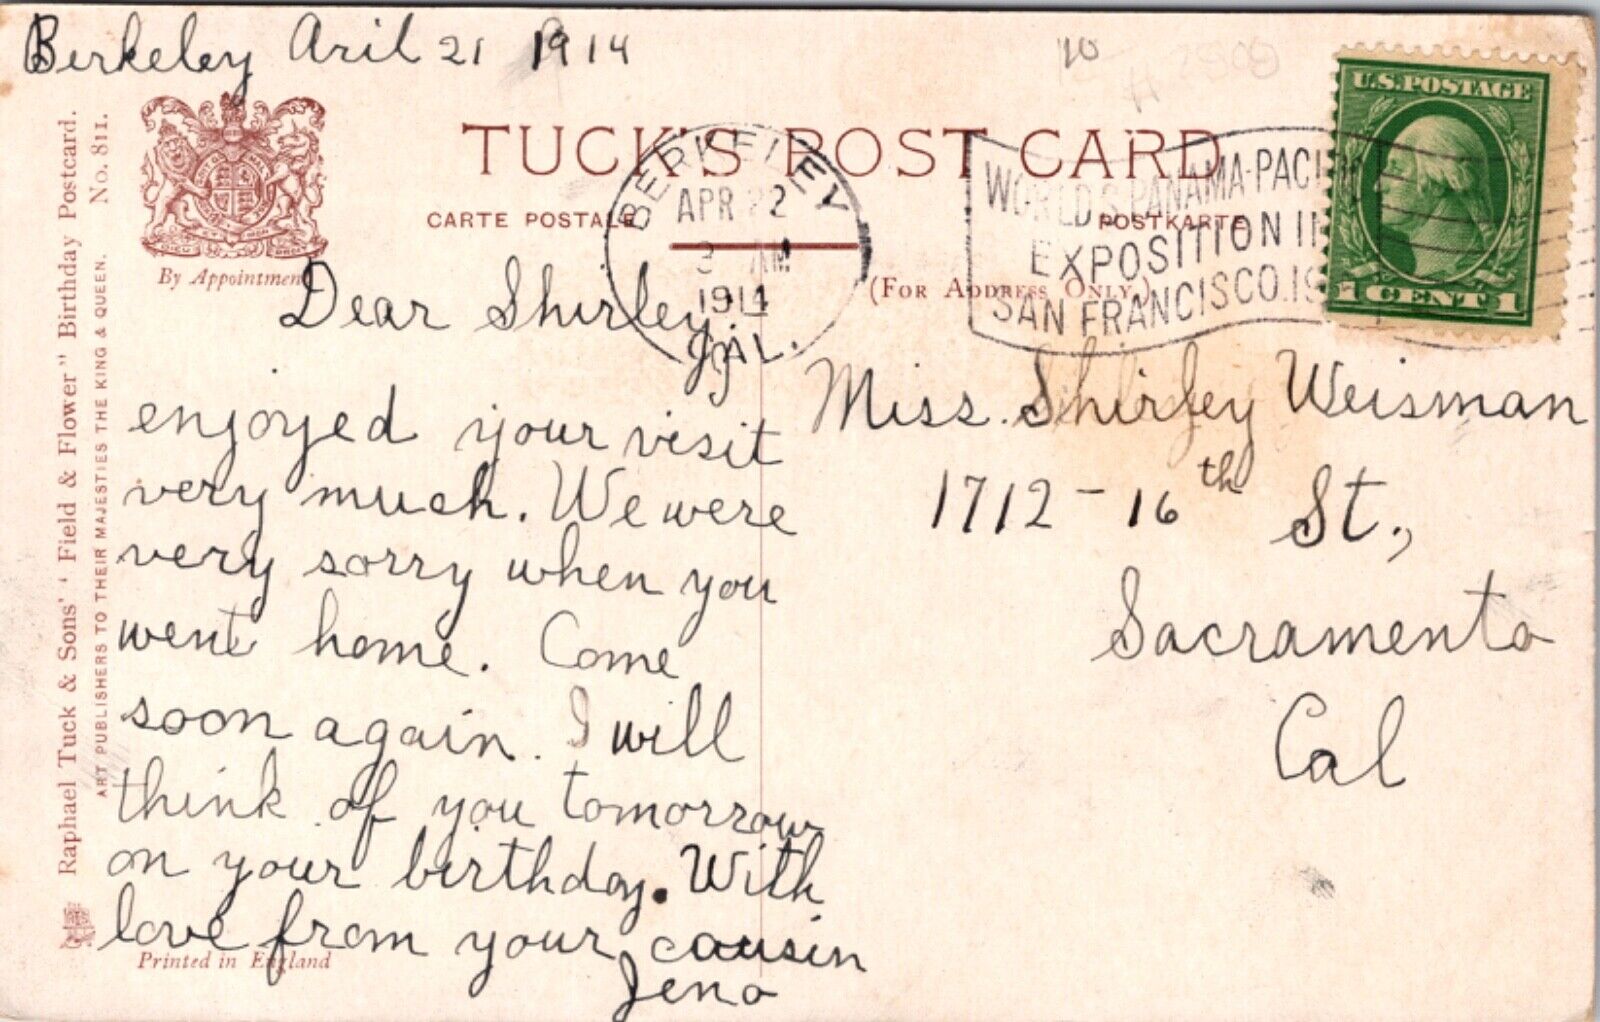 Berkeley Aril 21 1914
10
TUCK'S POST CARD
CARTE POSTALE
POSTKARTE
(FOR ADDRESS ONLY.)
By Appointment
Raphael Tuck & Sons' "Field & Flower" Birthday Postcard. No. 811.
ART PUBLISHERS TO THEIR MAJESTIES THE KING & QUEEN.
BERKELEY
APR 22
3 AM
1914
CAL.
WORLD'S PANAMA-PACIFIC
EXPOSITION IN
SAN FRANCISCO.19
U.S.POSTAGE
1 CENT 1
Dear Shirley,
enjoyed your visit
very much. We were
very sorry when you
went home. Come
soon again. I will
think of you tomorrow
on your birthday. With
love from your cousin
Jeno
Miss. Shirley Weisman
1712 - 16th St.,
Sacramento
Cal
Printed in England